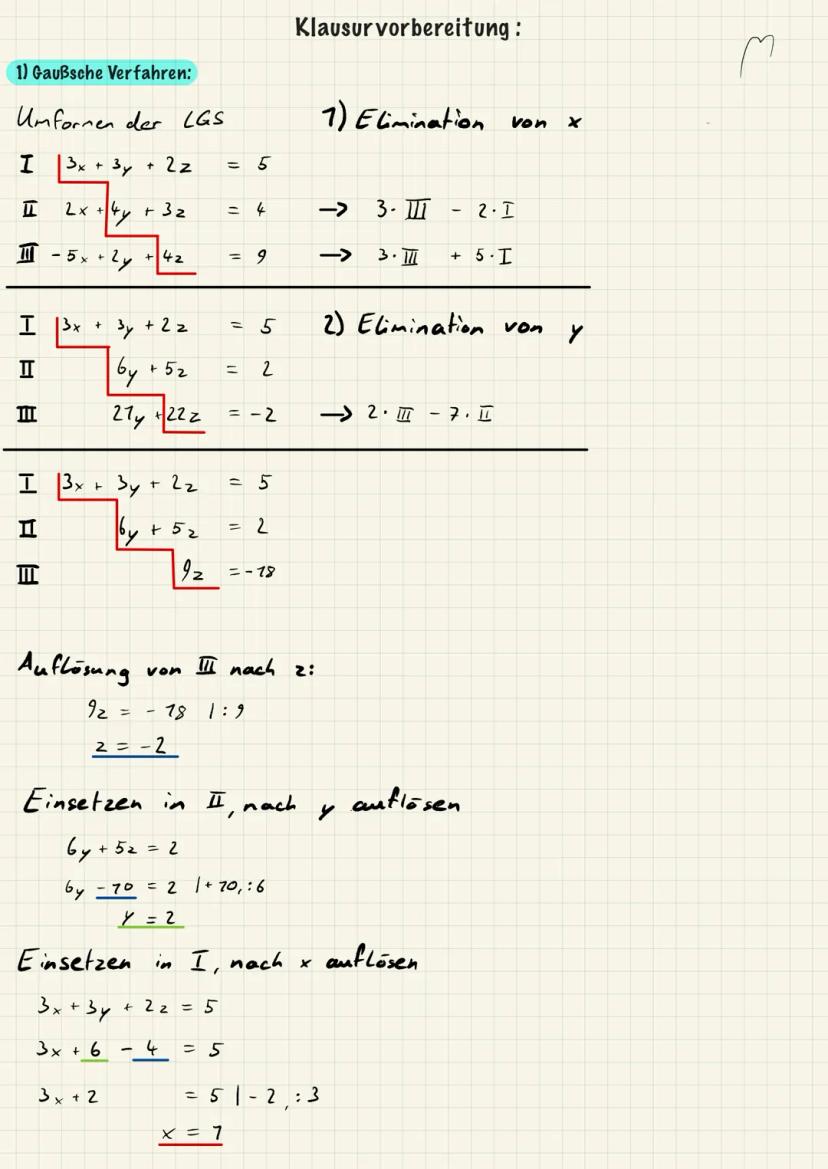 Klausurvorbereitung:
M
1) Gaußsche Verfahren:
Umformen der LGS 1) Elimination von x
I 3x + 3y + 2z = 5
II 2x + 4y + 3z = 4 → 3·III - 2·I
III -5x + 2y + 4z = 9 → 3·III + 5·I
I 3x + 3y + 2z = 5 2) Elimination von y
II 6y + 5z = 2
III 21y + 22z = -2 → 2·III - 7·II
I 3x + 3y + 2z = 5
II 6y + 5z = 2
III 9z = -18
Auflösung von III nach z:
9z = -18 |:9
z = -2
Einsetzen in II, nach y auflösen
6y + 5z = 2
6y - 10 = 2 |+10,:6
y = 2
Einsetzen in I, nach x auflösen
3x + 3y + 2z = 5
3x + 6 - 4 = 5
3x + 2 = 5 |-2,:3
x = 1